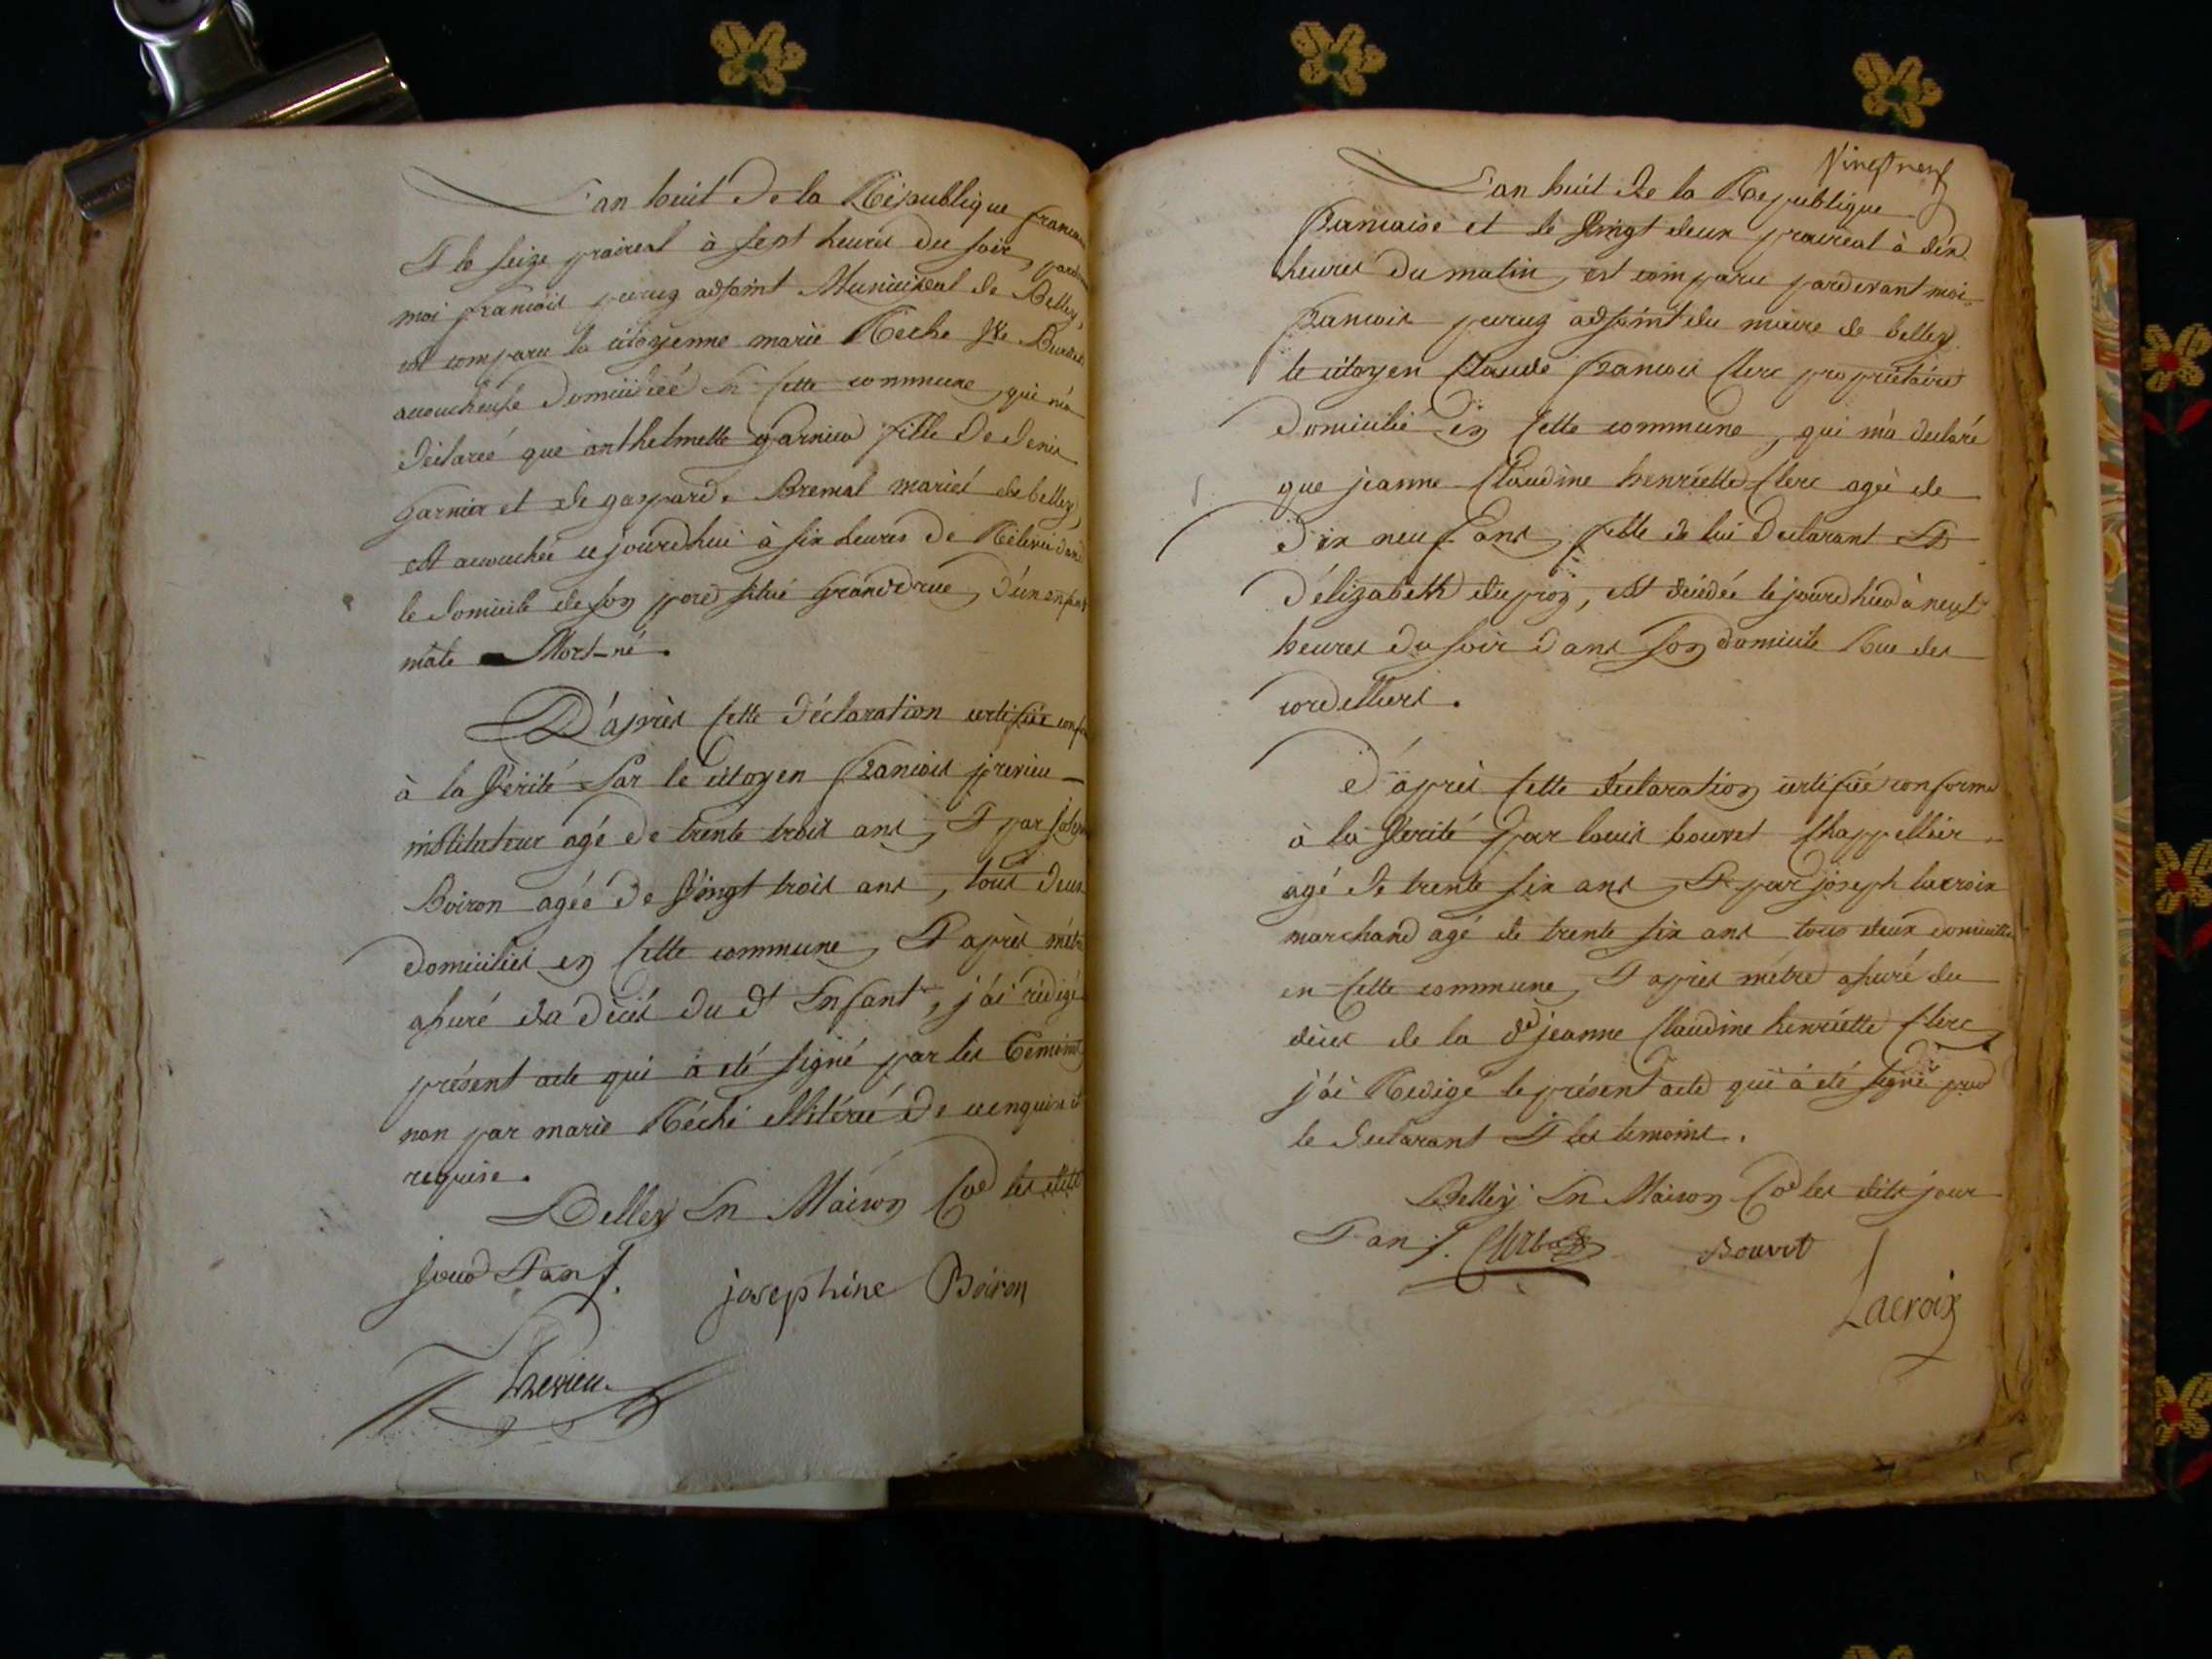 L'an huit de la République francaise
& le seize praireal à sept heures du soir, pardevant
moi francois peruz adjoint Municipal de Belley,
est comparu la citoyenne marie Reche
accoucheuse domiciliée en cette commune, qui m'a
déclaré que anthelmette garnier fille de denis
garnier et de gasparde Bremal mariés de belley,
est accouchée cejourdhui à six heures de Relevée dans
le domicile de son pere situé grande rue, d'un enfant
mâle Mort-né.
D'après cette déclaration certifiée conforme
à la Vérité par le citoyen francois previeu
instituteur agé de trente trois ans, & par
Boiron agée de vingt trois ans, tous deux
domiciliés en cette commune, & après m'etre
assuré du décès du dt Enfant, j'ai rédigé
présent acte qui a été signé par les témoins
non par marie Réche illitérée de ce enquise et
requise.
Belley En Maison Coe les dits
jour & an f.
josephine Boiron
previeu
Vingt neuf
L'an huit de la Republique
francaise et le vingt deux praireal à dix
heures du matin, est comparu pardevant moi
francois peruz adjoint du maire de belley
le citoyen Claude francois Clerc propriétaire
domicilié en cette commune, qui m'a declaré
que jeanne Claudine henriette Clerc agée de
dix neuf ans, fille de lui Declarant &
d'élizabeth duproz, est décédée le jourdhier à neuf
heures du soir dans son domicile Rue des
cordelliers.
d'après cette déclaration certifiée conforme
à la vérité par louis bouvet Chappellier
agé de trente six ans, & par joseph lacroix
marchand agé de trente six ans tous deux domiciliés
en cette commune, & après m'étre assuré du
décès de la de jeanne Claudine henriette Clerc,
j'ai Redigé le présent acte qui a été signé par
le declarant & les temoins.
Belley En Maison Coe les dits jour
& an f. Bouvet
Lacroix